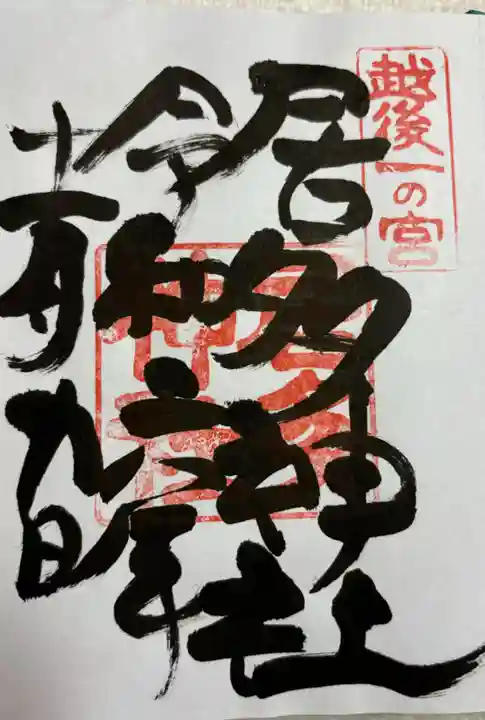 越後一の宮
居多神社
令和六年
十月九日
居多神社